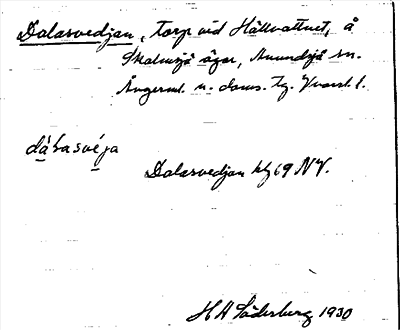 Dalasvedjan, torp vid Hällvattnet, å
Skalmsjö ägor, Anundsjö sn.
Ångerml. n. doms. tg. Västl. l.
dálasvéja
Dalasvedjan kbl 69 NV.
H A Söderberg 1930